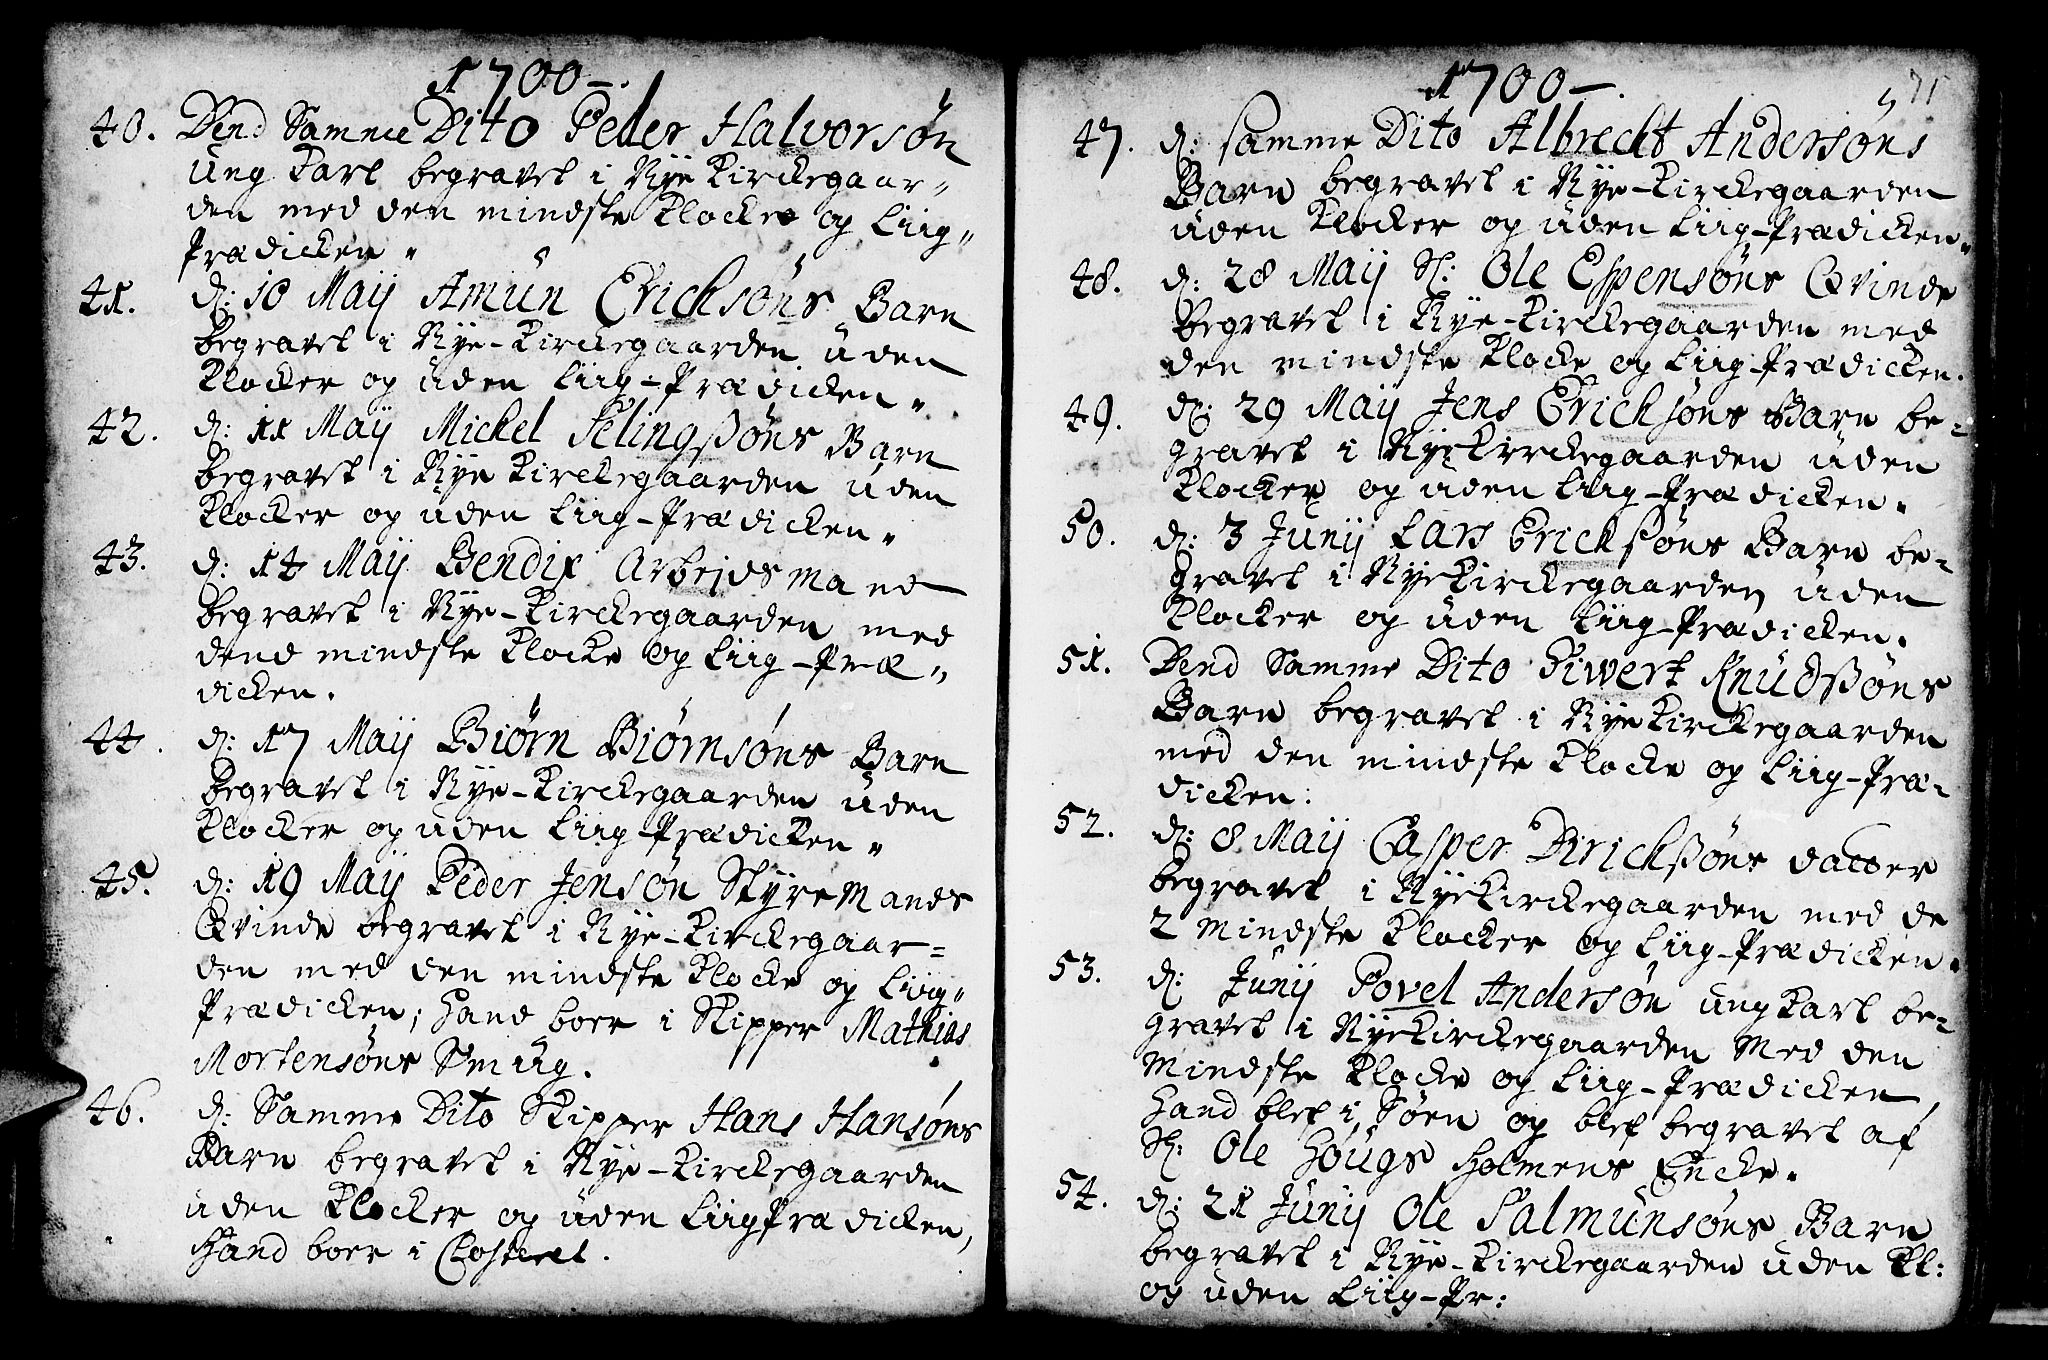 1700-.
40. Dend Samme Dito Peder Halvorsøn
Ung Karl begravet i Nÿe Kirckegaar-
den med den mindste Klocke og Liig-
Prædicken.
41. d: 10 Maÿ Amun Ericksøns Barn
begravet i Nÿe-Kirckegaarden uden
Klocker og uden Liig-Prædicken.
42. d: 11 Maÿ Mickel Selingßøns Barn
begravet i Nÿe Kirckegaarden uden
Klocker og uden Liig-Prædicken.
43. d: 14 Maÿ Bendix Arbejdsmand
begravet i Nÿe-Kirckegaarden med
dend mindste Klocke og Liig-Præ-
dicken.
44. d: 17 Maÿ Biørn Biørnsøns Barn
begravet i Nÿe-Kirckegaarden uden
Klocker og uden Liig-Prædicken.
45. d: 19 Maÿ Peder Jensøn Styremands
Qvinde begravet i Nÿe-Kirckegaar-
den med den mindste Klocke og Liig-
Prædicken; Hand boer i Skipper Mathias
Mortensøns Smug.
46. d: Samme Dito Skipper Hans Hansøns
Barn begravet i Nÿe-Kirckegaarden
uden Klocker og uden Liig Prædicken,
Hand boer i Closteret.
1700-. 71
47. d: samme Dito Albrecht Andersøns
Barn begravet i Nÿe-Kirckegaarden
uden Klocker og uden Liig-Prædicken.
48. d: 28 Maÿ Sl: Ole Espensøns Qvinde
begravet i Nÿe-Kirckegaarden med
den mindste Klocke og Liig-Prædicken.
49. d: 29 Maÿ Jens Ericksøns Barn be-
gravet i Nÿe Kirckegaarden uden
Klocker og uden Liig-Prædicken.
50. d: 3 Junÿ Lars Erickßøns Barn be-
gravet i Nÿe Kirckegaarden uden
Klocker og uden Liig-Prædicken.
51. Dend Samme Dito Siwert Knudßøns
Barn begravet i Nÿe Kirckegaarden
med den mindste Klocke og Liig-Præ-
dicken:
52. d: 8 Maÿ Casper Dirickßøns
begravet i Nÿe Kirckegaarden med de
2 mindste Klocker og Liig-Prædicken.
53. d: Junÿ Povel Andersøn ung Karl be-
gravet i Nÿe Kirckegaarden Med den
Mindste Klocke og Liig-Prædicken,
Hand blef i Søen og blef begravet af
Sl: Ole Høugs Holmens Encke.
54. d: 21 Junÿ Ole Salmunsøns Barn
begravet i Nÿe-Kirckegaarden uden Kl:
og uden Liig-Pr: